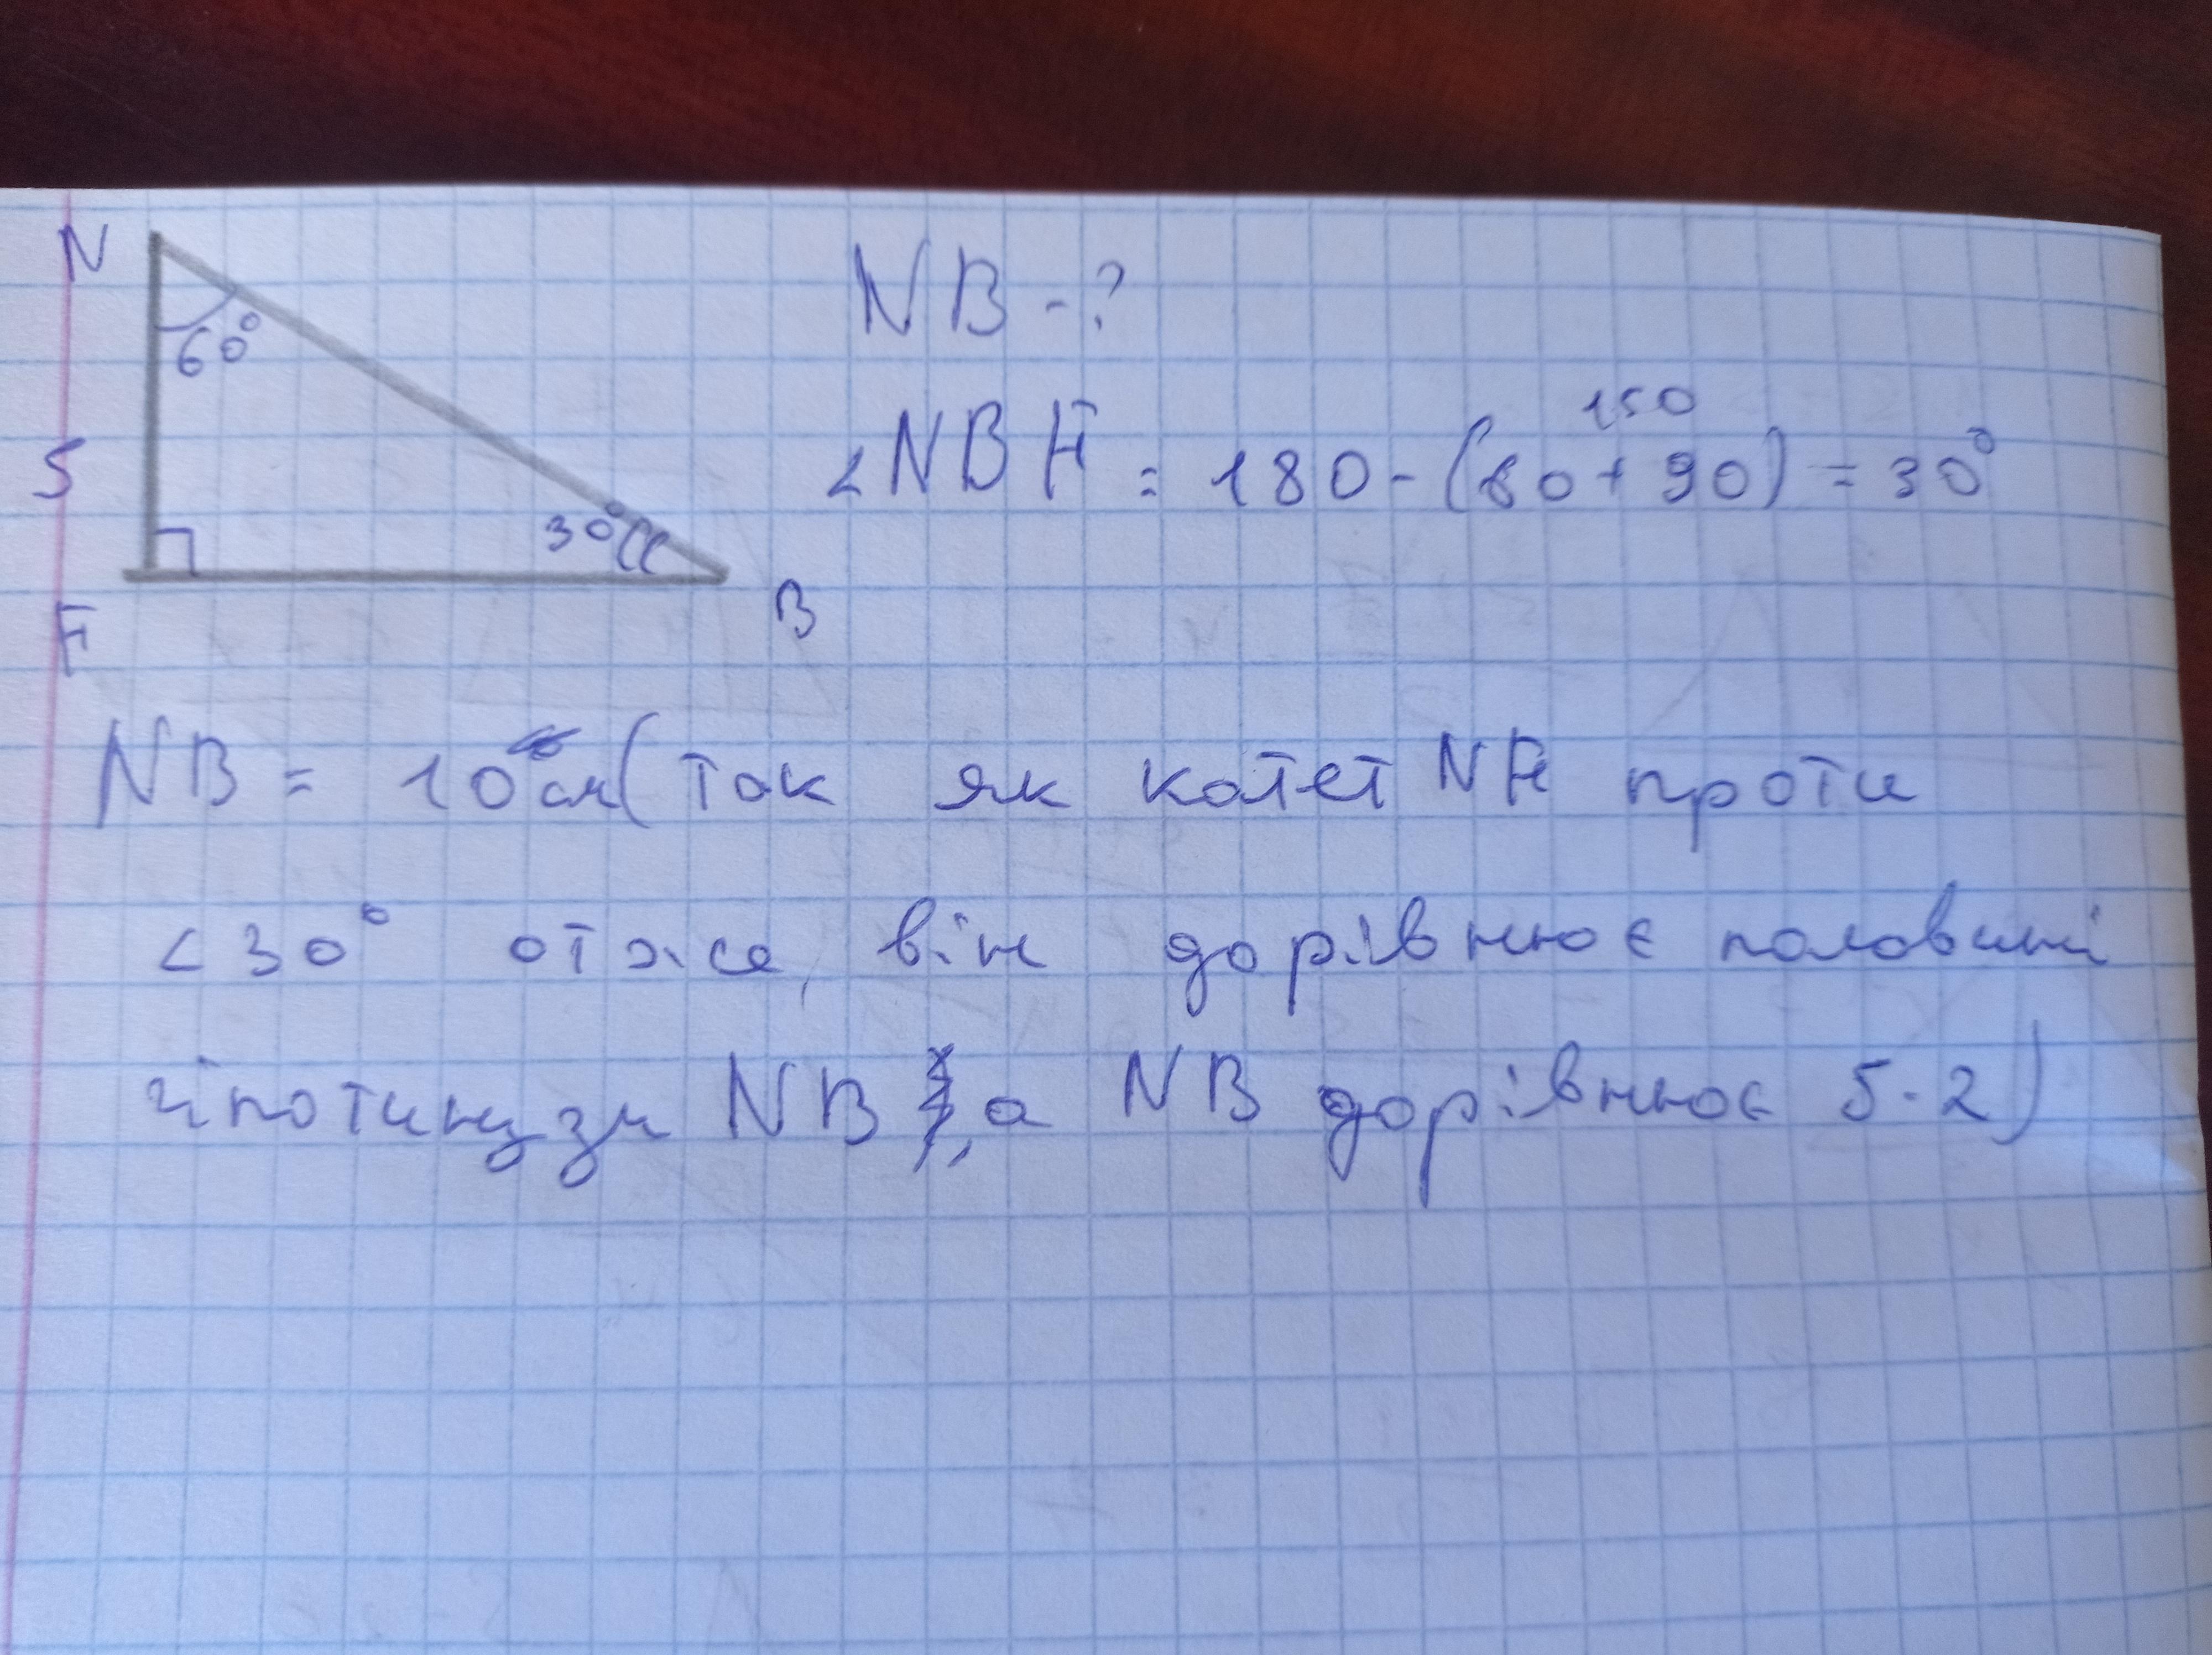 N
60°
5
30°
F
B
NB - ?
150
∠NBF = 180 - (60 + 90) = 30°
NB = 10 см (так як катет NF проти
∠30° отже, він дорівнює половині
гіпотинузи NB, а NB дорівнює 5·2)